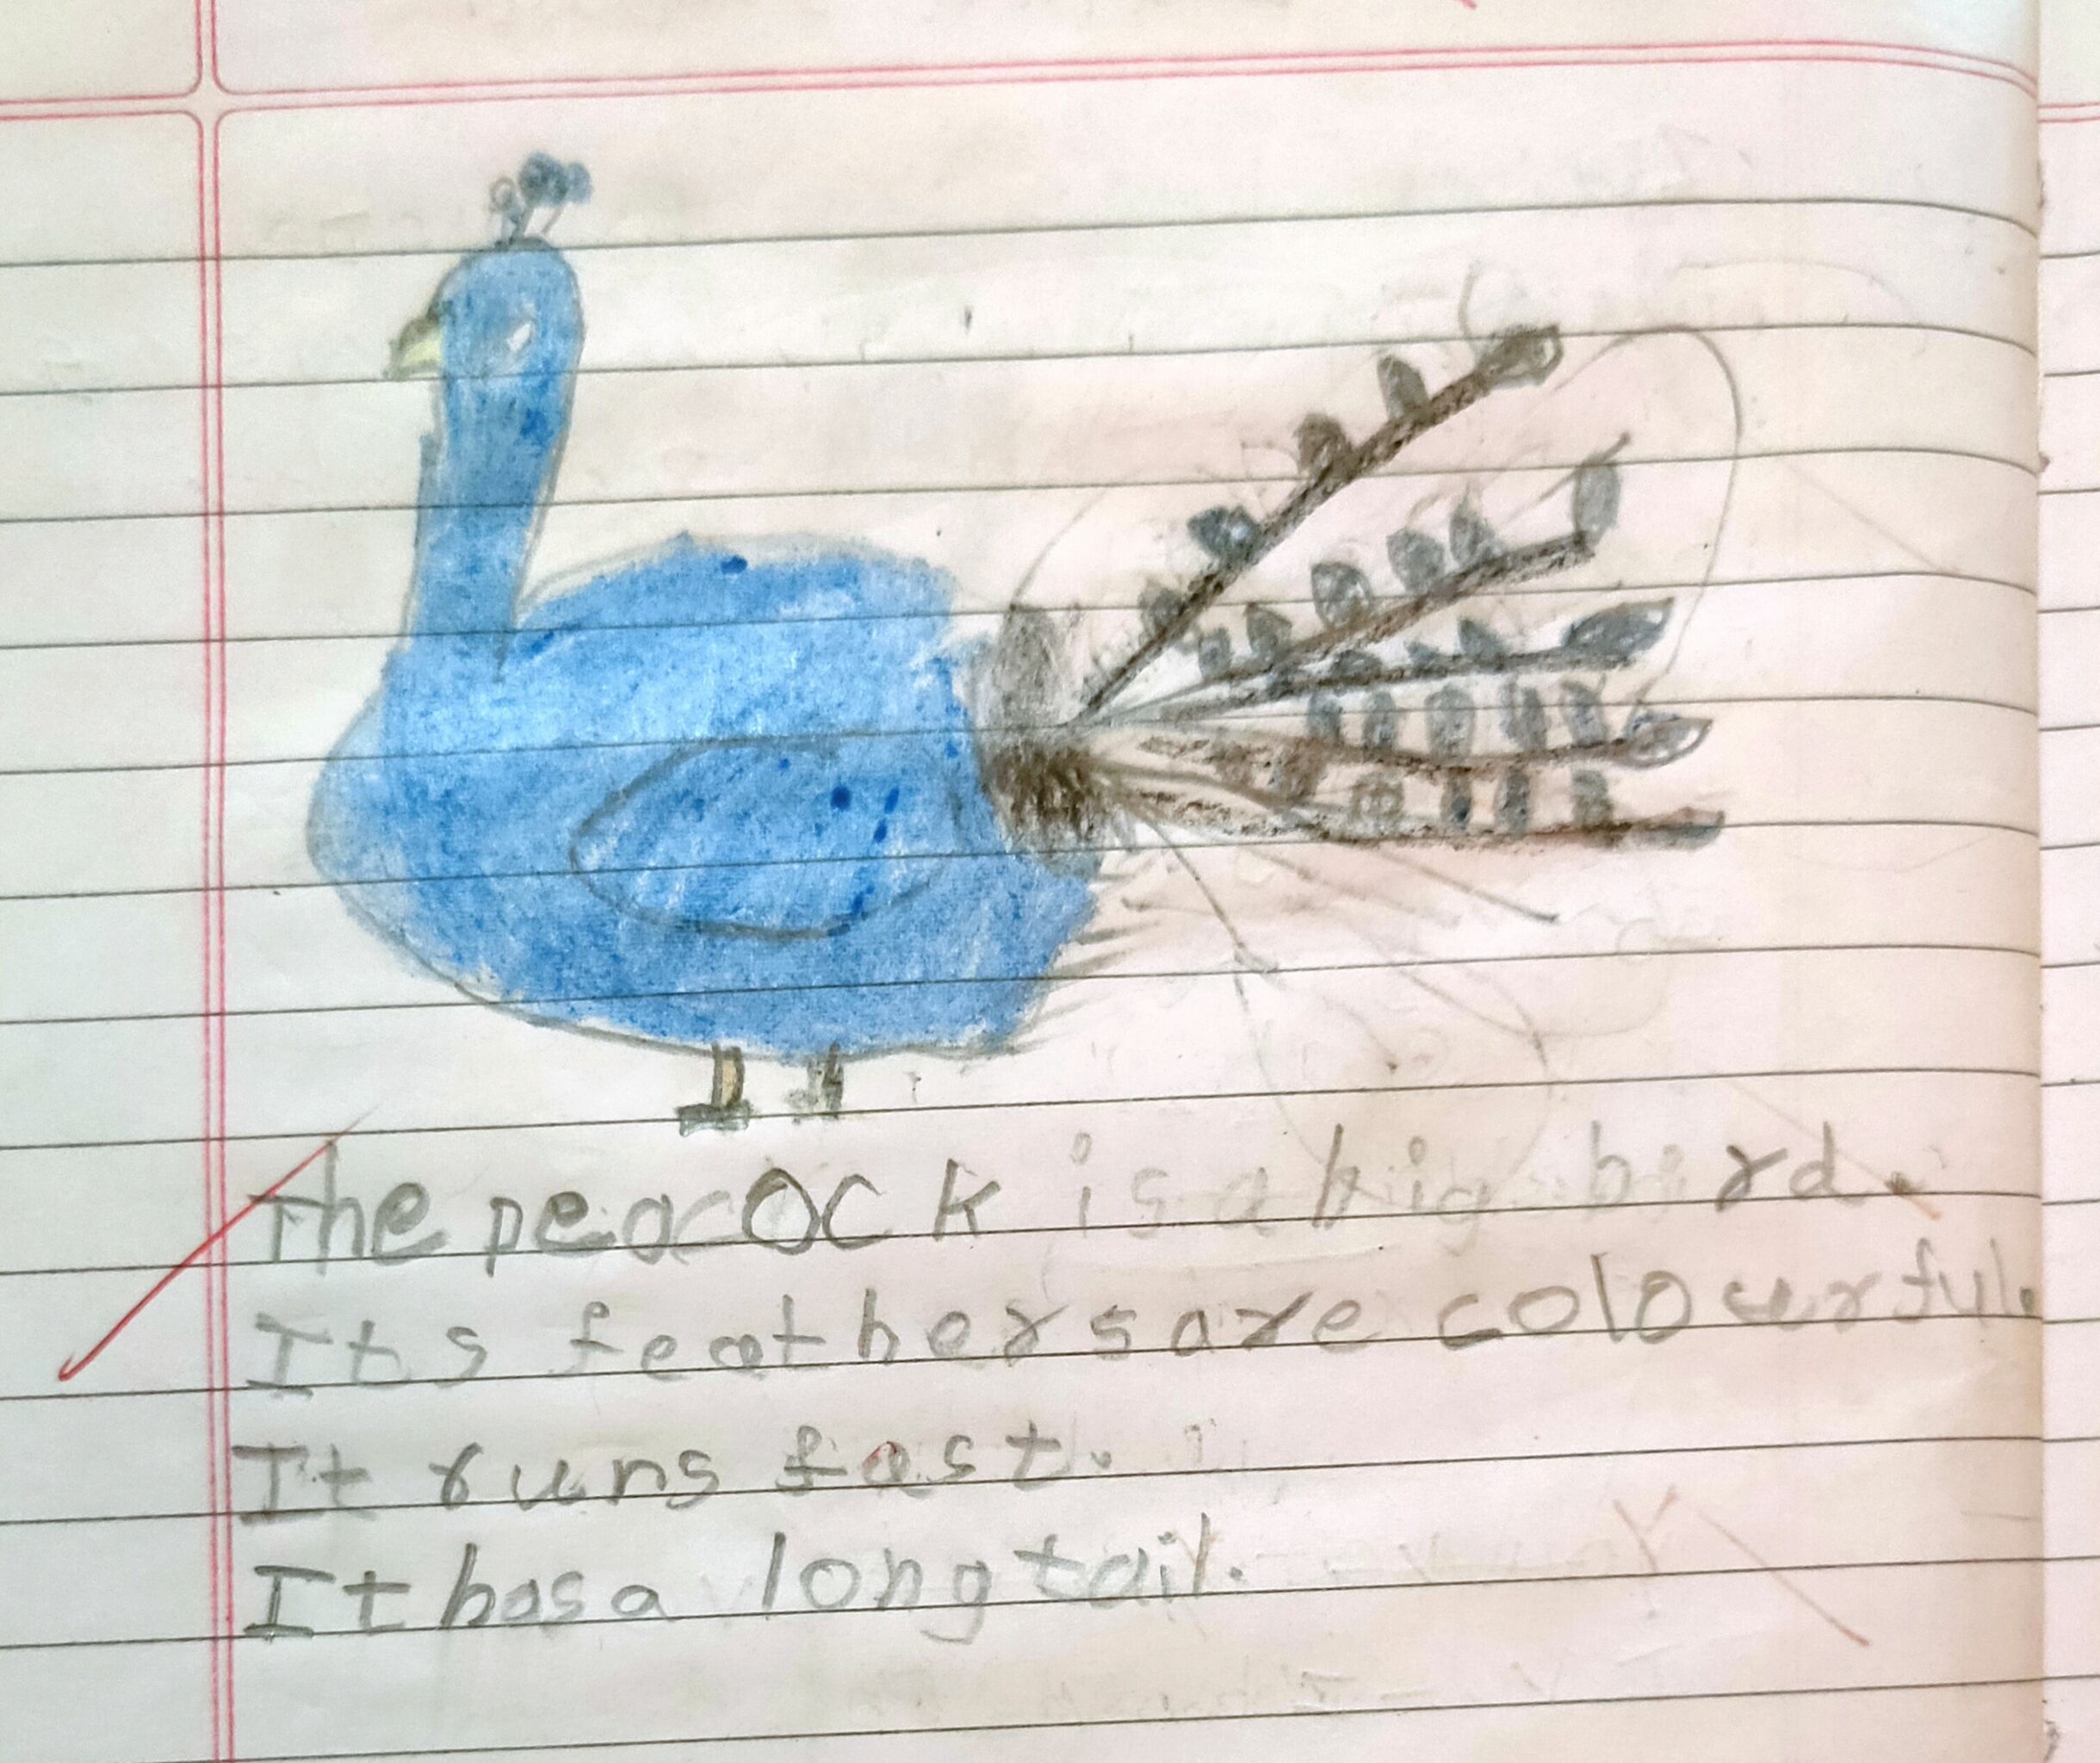 The peacock is a big bird.
Its feathers are colourful.
It runs fast.
It has a long tail.